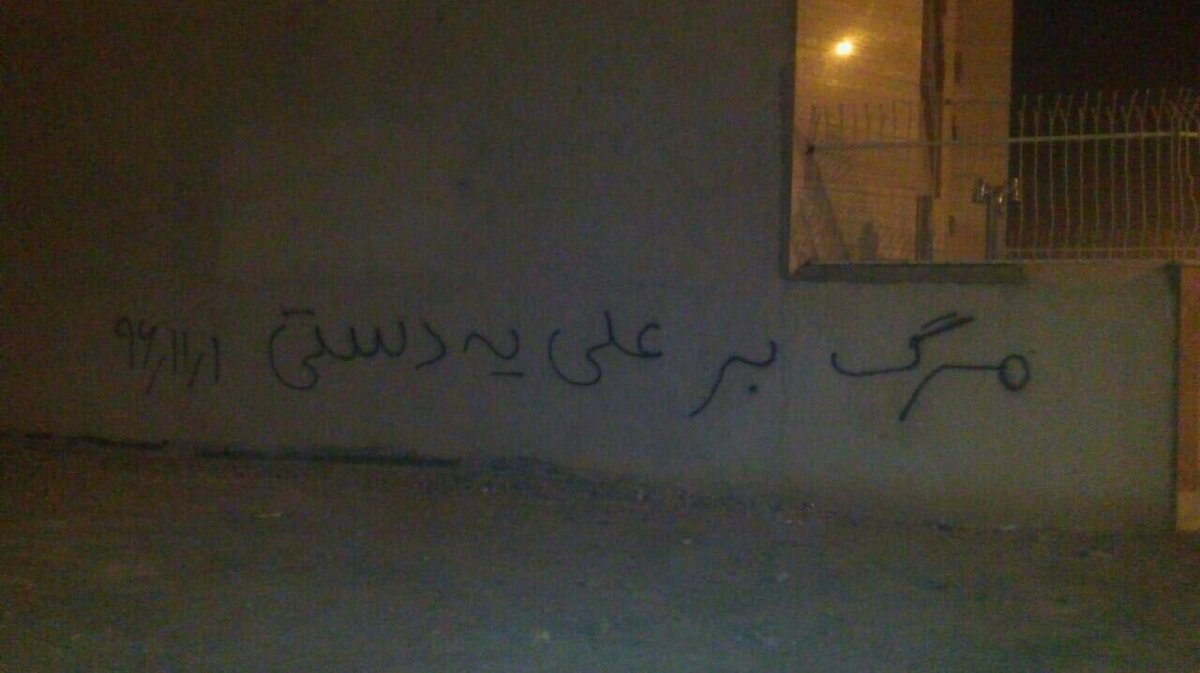 مرگ بر علی یه دستی ۹۶٫۱۱٫۱